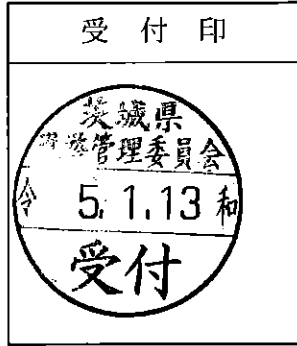 受付印
茨城県
選挙管理委員会
令 5.1.13 和
受付